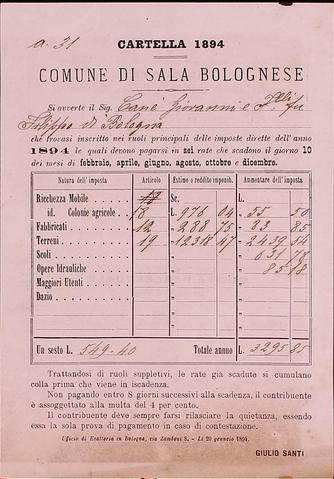 a. 31
CARTELLA 1894
COMUNE DI SALA BOLOGNESE
Si averte il Sig. Cané Giovanni e F.lli fu
Filippo di Bologna
che trovasi inscritto nei ruoli principali delle imposte dirette dell'anno
1894 le quali devono pagarsi in sei rate che scadono il giorno 10
dei mesi di febbraio, aprile, giugno, agosto, ottobre e dicembre.
Natura dell'imposta Articolo Estimo o reddito imponib. Ammontare dell'imposta
Ricchezza Mobile . . . 17 Sc.
id. Colonie agricole . 18 L. 976 04 L. 55 50
Fabbricati . . . . 12 " 288 75 " 83 85
Terreni . . . . . 19 " 12318 47 " 2439 54
Scoli . . . . . " " 631 78
Opere Idrauliche . . " " 85 18
Maggiori Utenti . . " "
Dazio . . . . . " "
Un sesto L. 549.40 Totale annuo L. 3295 85
Trattandosi di ruoli suppletivi, le rate già scadute si cumulano
colla prima che viene in iscadenza.
Non pagando entro 8 giorni successivi alla scadenza, il contribuente
è assoggettato alla multa del 4 per cento.
Il contribuente deve sempre farsi rilasciare la quietanza, essendo
essa la sola prova di pagamento in caso di contestazione.
Ufficio di Esattoria in Bologna, via Zamboni 8. - Li 20 gennaio 1894.
GIULIO SANTI